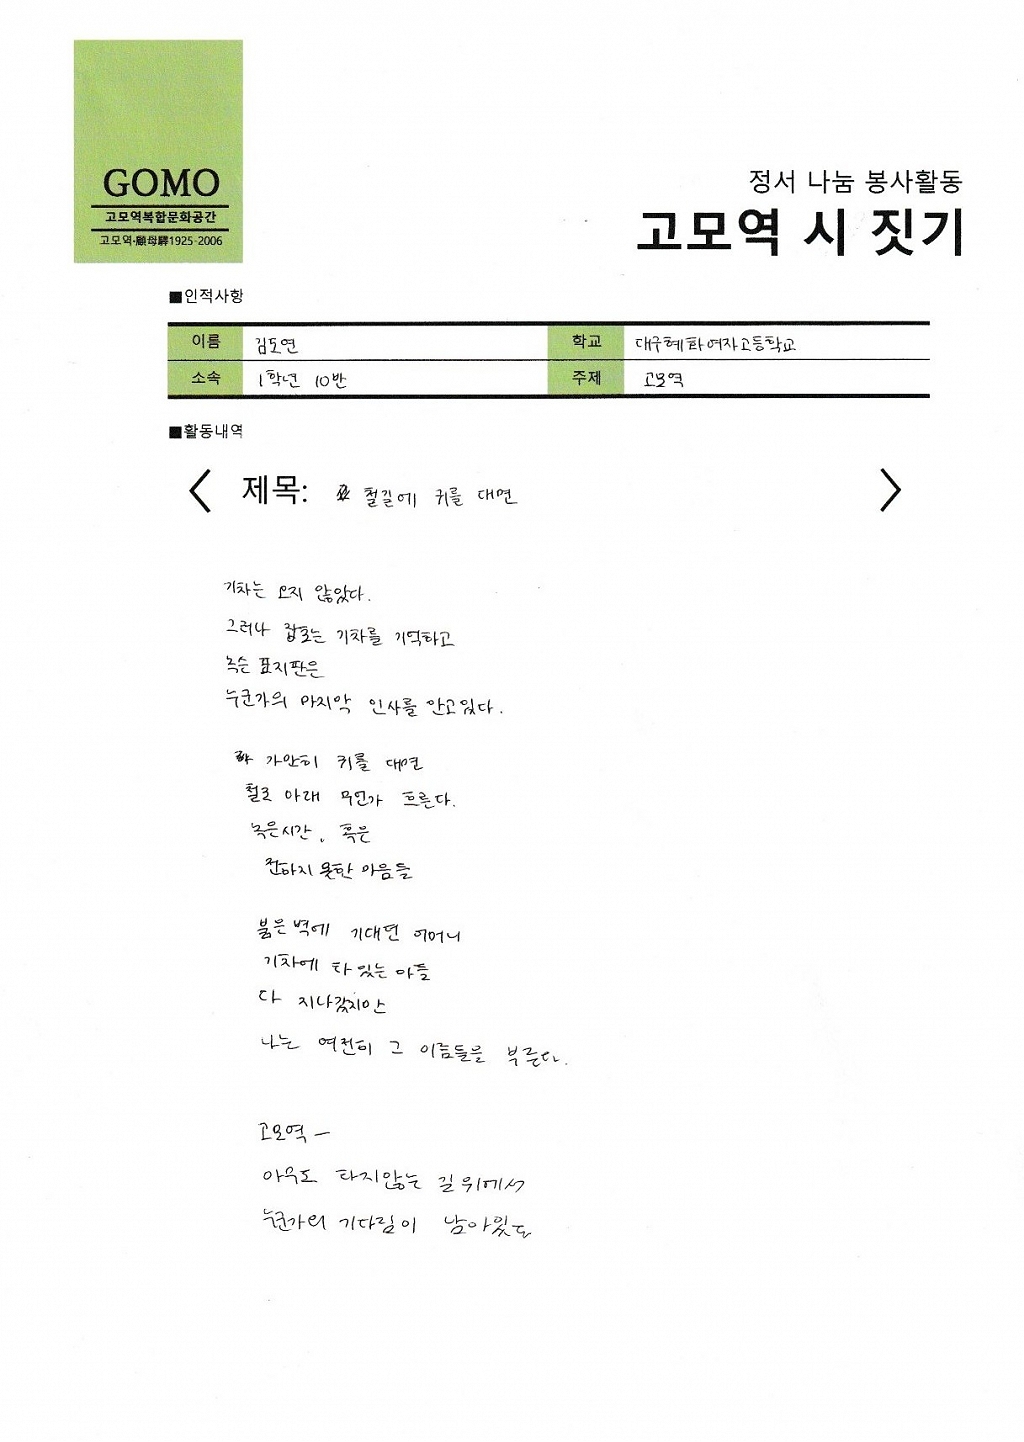 GOMO
고모역복합문화공간
고모역·顧母驛1925-2006
정서 나눔 봉사활동
고모역 시 짓기
■인적사항
이름 김도연 학교 대구혜화여자고등학교
소속 1학년 10반 주제 고모역
■활동내역
< 제목: 철길에 귀를 대면 >
기차는 오지 않았다.
그러나 잡초는 기차를 기억하고
녹슨 표지판은
누군가의 마지막 인사를 안고있다.
가만히 귀를 대면
철로 아래 무언가 흐른다.
녹은시간, 혹은
전하지 못한 마음들
붉은벽에 기대던 어머니
기차에 타 있는 아들
다 지나갔지만
나는 여전히 그 이름들을 부른다.
고모역 —
아무도 타지않는 길 위에서
누군가의 기다림이 남아있는